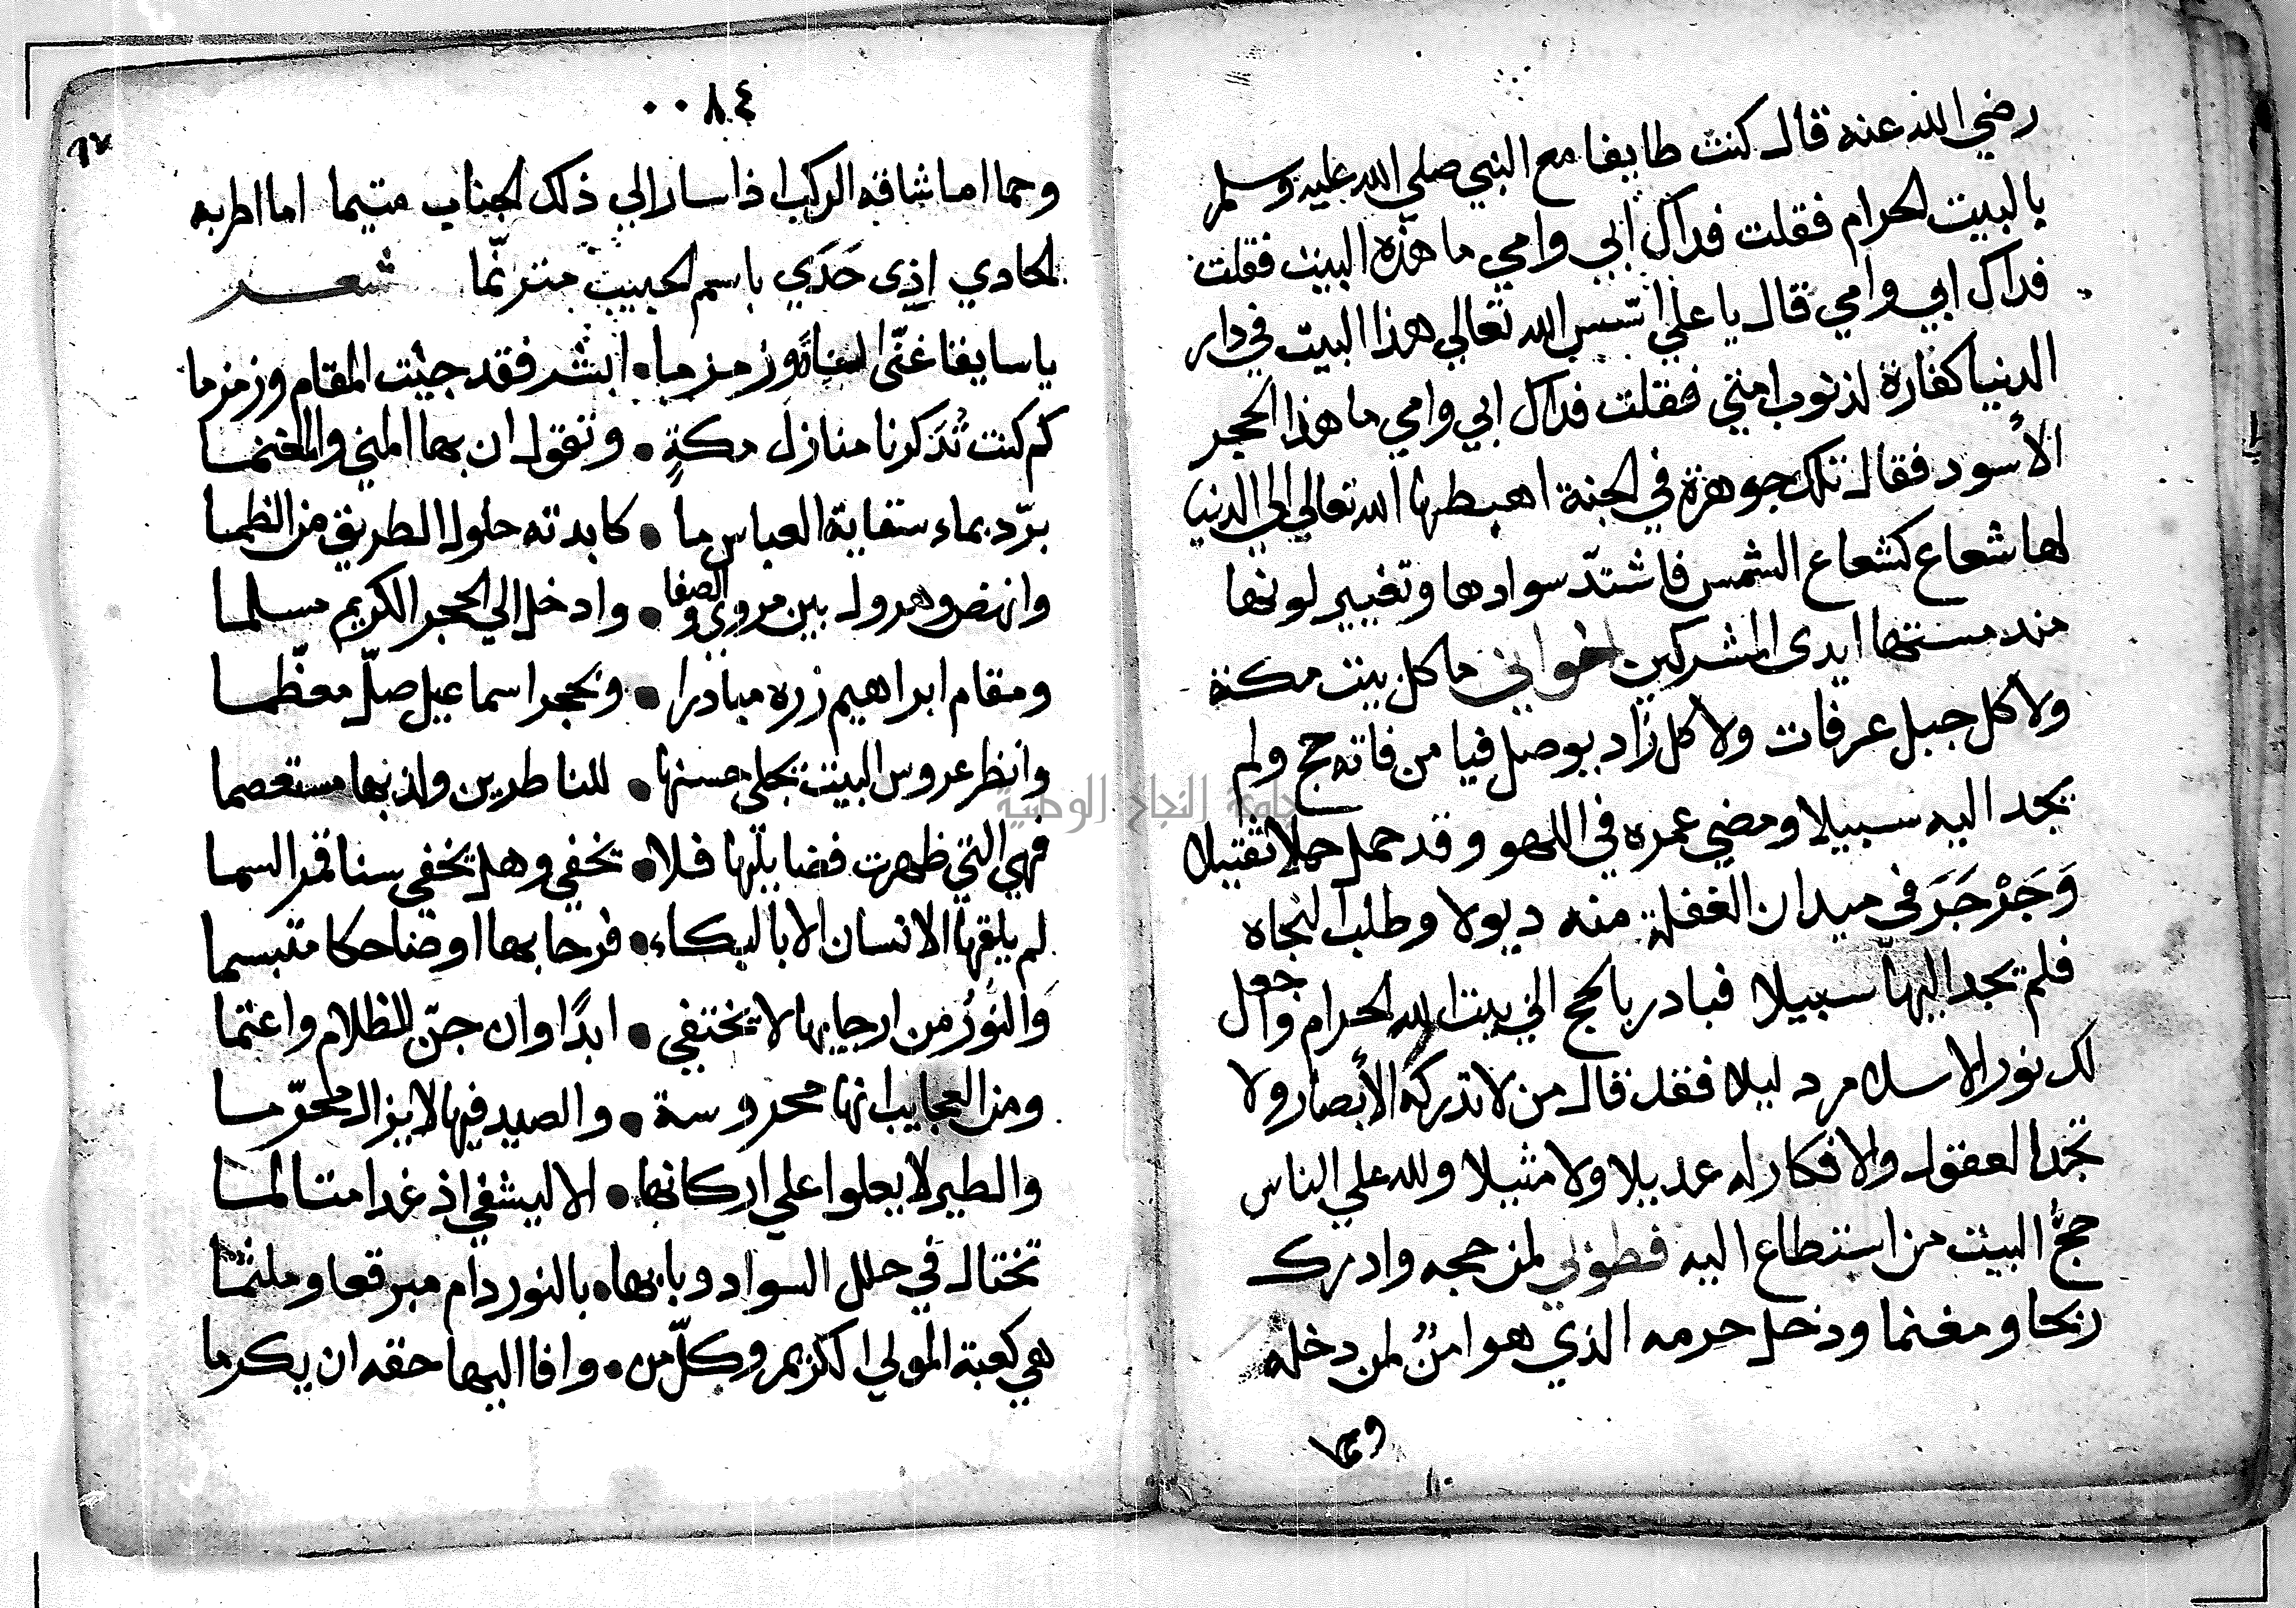 رضي الله عنه قال كنت طايفا مع النبي صلي الله عليه وسلم
بالبيت الحرام فقلت فداك ابي وامي ما هذه البيت فقلت
فداك ابي وامي قال يا علي اسس الله تعالي هذا البيت في دار
الدنيا كفارة لذنوب امتي فقلت فداك ابي وامي ما هذا الحجر
الأسود فقال تلك جوهرة في الجنة اهبطها الله تعالي الي الدنيا
لها شعاع كشعاع الشمس فاشتدّ سوادها وتغيير لونها
منذ مستها ايدى المشركين اخواني ما كل بيت مكة
ولا كل جبل عرفات ولا كل زاد يوصل فيا من فاته حج ولم
يجد اليه سبيلا ومضي عمره في اللهو وقد حمل حملا ثقيلا
وَجَرْجَرَ في ميدان الغفلة منه ديولا وطلب النجاه
فلم يجد اليها سبيلا فبادر بالحج الي بيت الله الحرام وآل جعل
لك نور الاسلام دليلا فقد قال من لا تدركه الأبصار ولا
تجد العقول والافكار له عديلا ولا مثيلا ولله علي الناس
حجُّ البيت من استطاع اليه فطوبي لمن حجه وادرك
ربحا ومغنما ودخل حرمه الذي هو امنٌ لمن دخله
وحما
٠٠٨٤
٦٧
وحما اما شاقه الركب اذا سار الي ذلك الجناب متيما اما اطربه
الحادي إذى حَدَي باسم الحبيب مترنّما شعر
يا سايفا غنّى لنا وزمزما • ابشر فقد جيت المقام وزمزما
كم كنت تُذَكرنا منازل مكةٍ • وتقول ان بها المني والمغنما
برّد بماء سقاية العباس ما • كابدته حلول الطريق من الظما
وانهض وهرول بين مروي والصفا • وادخل الي الحجر الكريم مسلما
ومقام ابراهيم زره مبادرا • وبحجر اسماعيل صلّ معظّما
وانظر عروس البيت تجلي حسنها • للناطرين ولذ بها مستعصما
فهي التي ظهرت فضايلها فلا • تخفي وهل يخفي سنا قمر السما
لم يلقها الانسان الا باليكاء • فرحا بها او ضاحكا متبسما
والنُورُ من ارجايها لا يختفي • ابدًا وان جنّ الظلام واعتما
ومن العجايب انها محروسة • والصيد فيها لا يزال محرّما
والطير لا يعلوا علي اركانها • الا ليشفي اذ غدا متالما
تختال في حلل السواد وبابها • بالنور دام مبرقعا وملثما
هي كعبة المولي الكريم وكلّ من • وافا اليها حقه ان يكرما
جامعة النجاح الوطنية